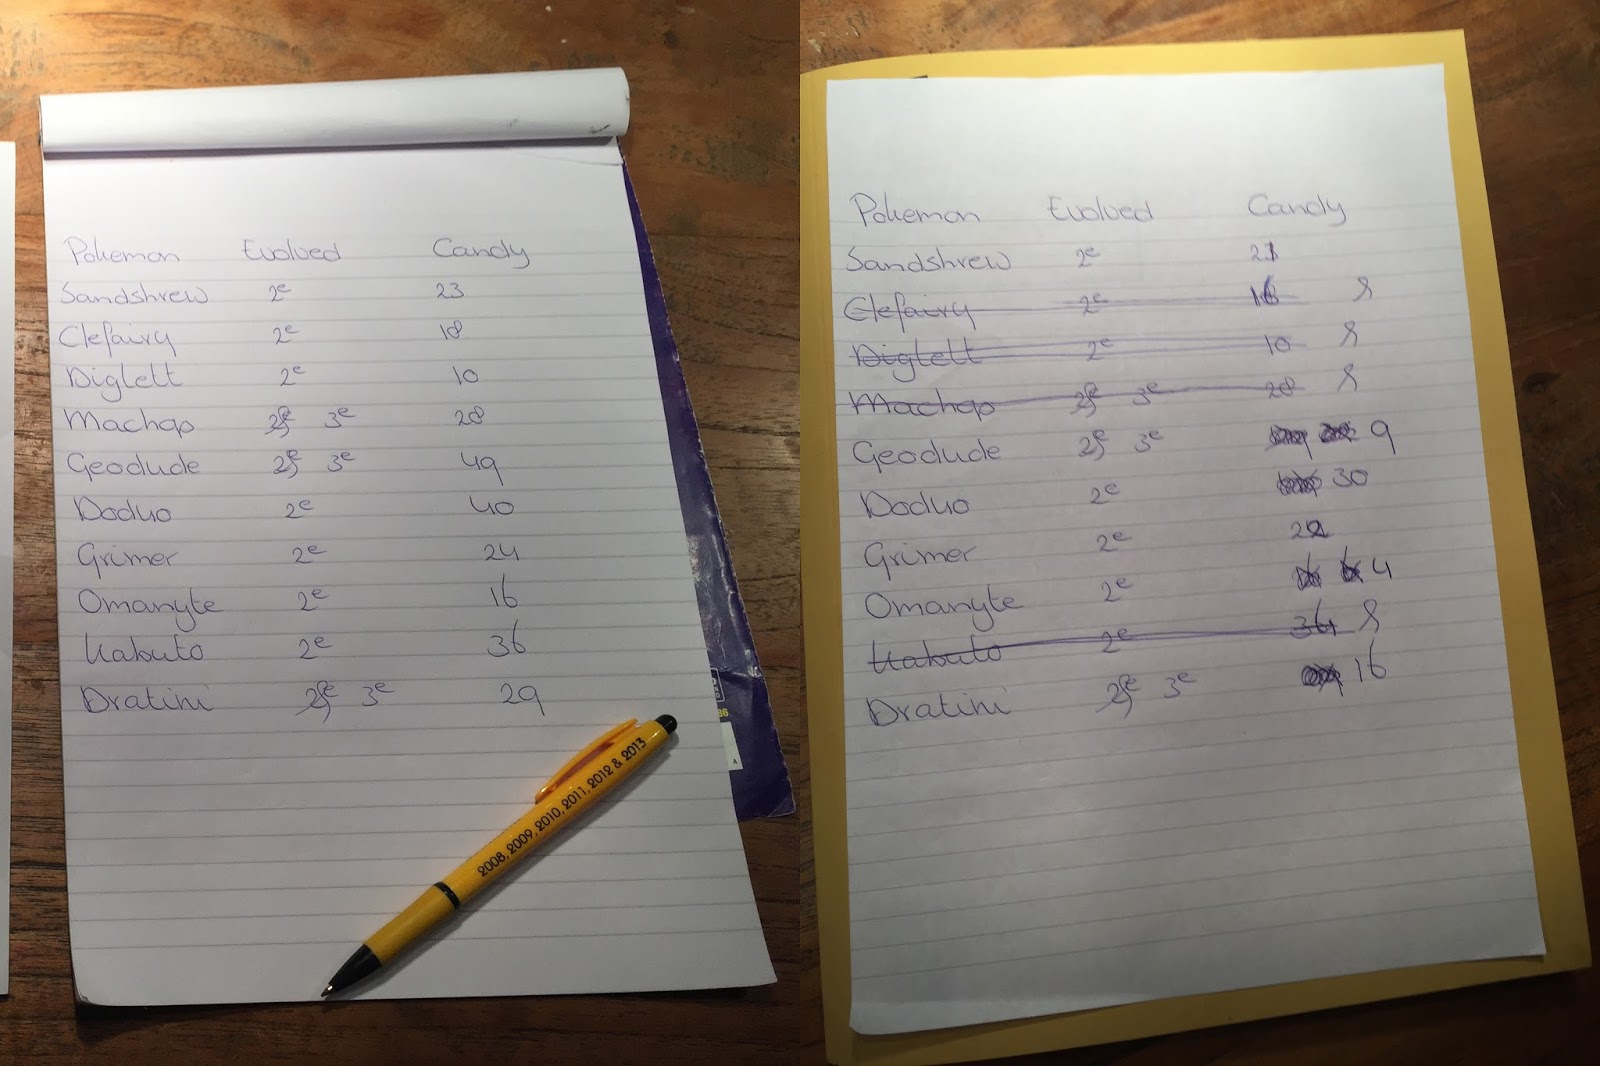 Pokemon Evolved Candy
Sandshrew 2e 23
Clefairy 2e 18
Diglett 2e 10
Machop 2e 3e 28
Geodude 2e 3e 49
Doduo 2e 40
Grimer 2e 24
Omanyte 2e 16
Kabuto 2e 36
Dratini 2e 3e 29
2008, 2009, 2010, 2011, 2012 & 2013
Pokemon Evolved Candy
Sandshrew 2e
Clefairy 2e
Diglett 2e 10
Machop 2e 3e 28
Geodude 2e 3e 9
Doduo 2e 30
Grimer 2e 22
Omanyte 2e 4
Kabuto 2e
Dratini 2e 3e 16